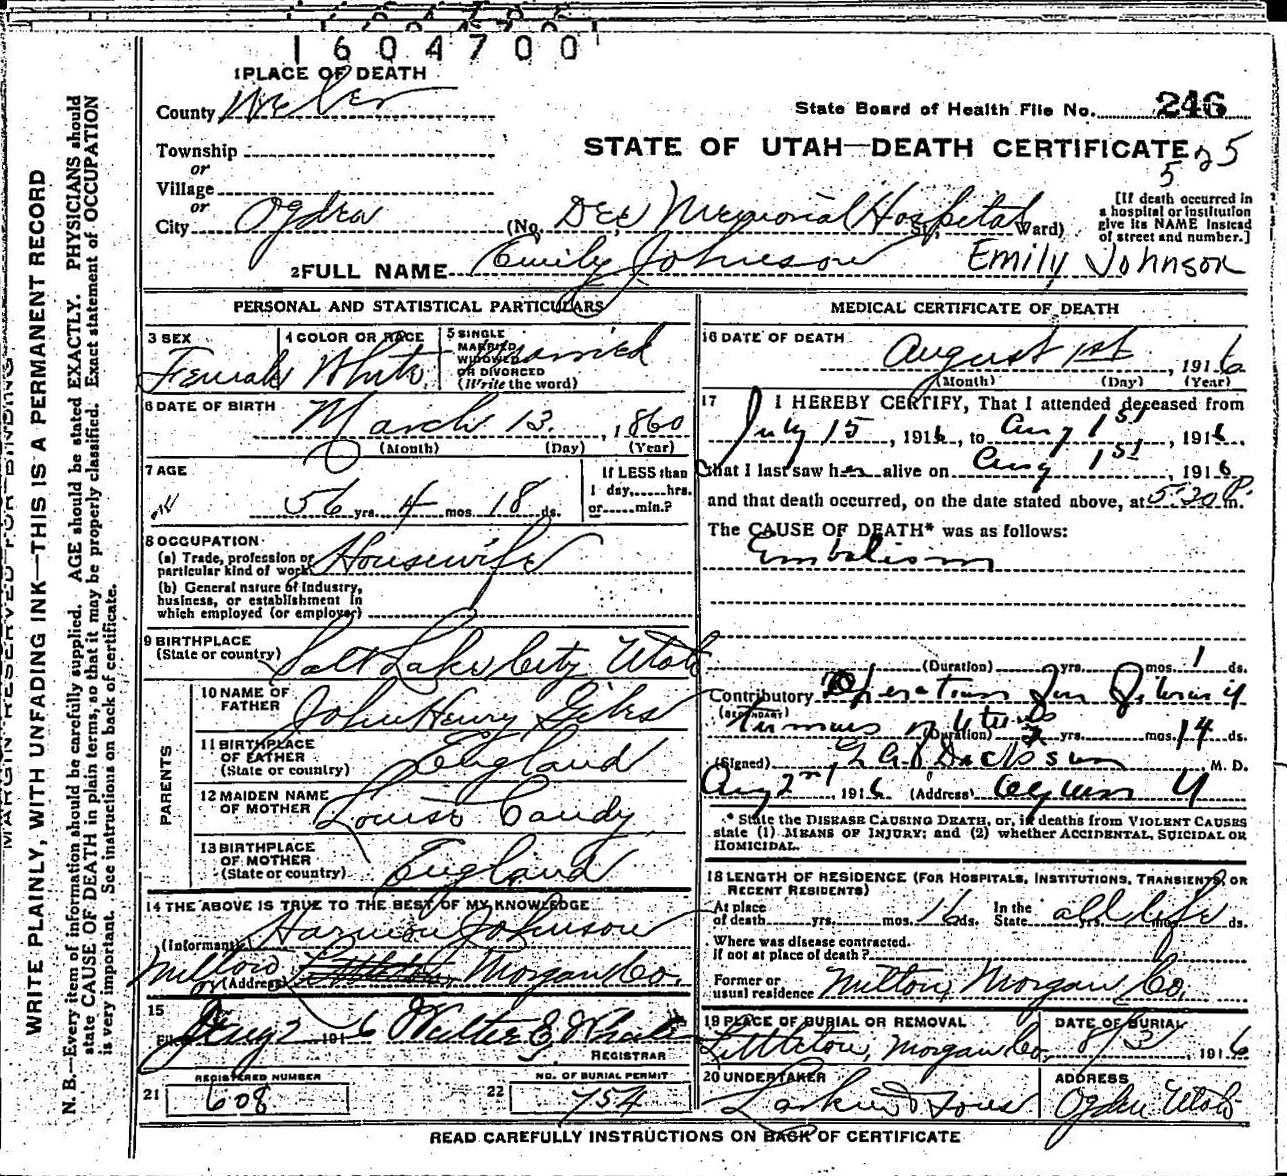 1604700
1 PLACE OF DEATH
County Weber
State Board of Health File No. 246
Township
or
STATE OF UTAH—DEATH CERTIFICATE
525
Village
or
City Ogden (No. Dee Memorial Hospital St., Ward)
[If death occurred in
a hospital or institution
give its NAME instead
of street and number.]
2 FULL NAME Emily Johnson Emily Johnson
PERSONAL AND STATISTICAL PARTICULARS
3 SEX
Female
4 COLOR OR RACE
White
5 SINGLE
MARRIED
WIDOWED
OR DIVORCED
(Write the word)
Married
6 DATE OF BIRTH
March 13, 1860
(Month) (Day) (Year)
7 AGE
56 yrs. 4 mos. 18 ds.
If LESS than
1 day,......hrs.
or......min.?
8 OCCUPATION
(a) Trade, profession or
particular kind of work Housewife
(b) General nature of industry,
business, or establishment in
which employed (or employer)
9 BIRTHPLACE
(State or country) Salt Lake City Utah
PARENTS
10 NAME OF
FATHER John Henry Gibbs
11 BIRTHPLACE
OF FATHER
(State or country) England
12 MAIDEN NAME
OF MOTHER Louisa Candy
13 BIRTHPLACE
OF MOTHER
(State or country) England
14 THE ABOVE IS TRUE TO THE BEST OF MY KNOWLEDGE
(Informant) Harmon Johnson
(Address) Milton Morgan Co.
15
Filed Aug 2 1916 Walter E. Whalen
REGISTRAR
REGISTERED NUMBER
21 608
NO. OF BURIAL PERMIT
22 754
MEDICAL CERTIFICATE OF DEATH
16 DATE OF DEATH
August 1st, 1916
(Month) (Day) (Year)
17 I HEREBY CERTIFY, That I attended deceased from
July 15, 1916, to Aug 1st, 1916.
that I last saw her alive on Aug 1st, 1916
and that death occurred, on the date stated above, at 5:20 P.m.
The CAUSE OF DEATH* was as follows:
Embolism
(Duration) yrs. mos. 1 ds.
Contributory Operation for Fibroid
(SECONDARY)
tumors of Uterus
(Duration) yrs. mos. 14 ds.
(Signed) M. D.
Aug 2nd, 1916 (Address) Ogden U
* State the DISEASE CAUSING DEATH, or, in deaths from VIOLENT CAUSES
state (1) MEANS OF INJURY; and (2) whether ACCIDENTAL, SUICIDAL OR
HOMICIDAL.
18 LENGTH OF RESIDENCE (FOR HOSPITALS, INSTITUTIONS, TRANSIENTS, OR
RECENT RESIDENTS)
At place
of death yrs. mos. 16 ds. In the
State all life ds.
Where was disease contracted.
If not at place of death?
Former or
usual residence Milton, Morgan Co.
19 PLACE OF BURIAL OR REMOVAL
Littleton, Morgan Co.
DATE OF BURIAL
8/3 1916
20 UNDERTAKER
Larkin & Sons
ADDRESS
Ogden Utah
READ CAREFULLY INSTRUCTIONS ON BACK OF CERTIFICATE
MARGIN RESERVED FOR BINDING
WRITE PLAINLY, WITH UNFADING INK—THIS IS A PERMANENT RECORD
N. B.—Every item of information should be carefully supplied. AGE should be stated EXACTLY. PHYSICIANS should
state CAUSE OF DEATH in plain terms, so that it may be properly classified. Exact statement of OCCUPATION
is very important. See instructions on back of certificate.